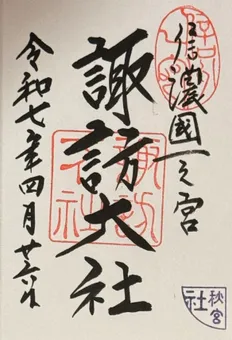 信濃國一之宮
諏訪大社
令和七年四月廿六日
秋宮
社